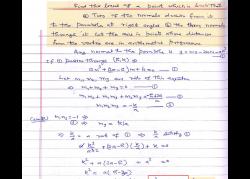 Find the locus of a point which is such that
① Two of the normals drawn from it
to the parabola at right angles ② the three normals
through it cut the axis in points whose distance
from the vertex are in arithmetic progression
Any normal to the parabola is y = mx - 2am - am³
If ① passes through (h, k) is
am³ + (2a-h)m + k = 0
Let m₁, m₂, m₃ are roots of this equation
m₁ + m₂ + m₃ = 0
m₁m₂ + m₂m₃ + m₃m₁ =
m₁m₂m₃ = -k/a
m₁m₂ = -1
m₃ = k/a
a root of
k² + a(2a-h) + a² = 0
k² = a(h-3a)